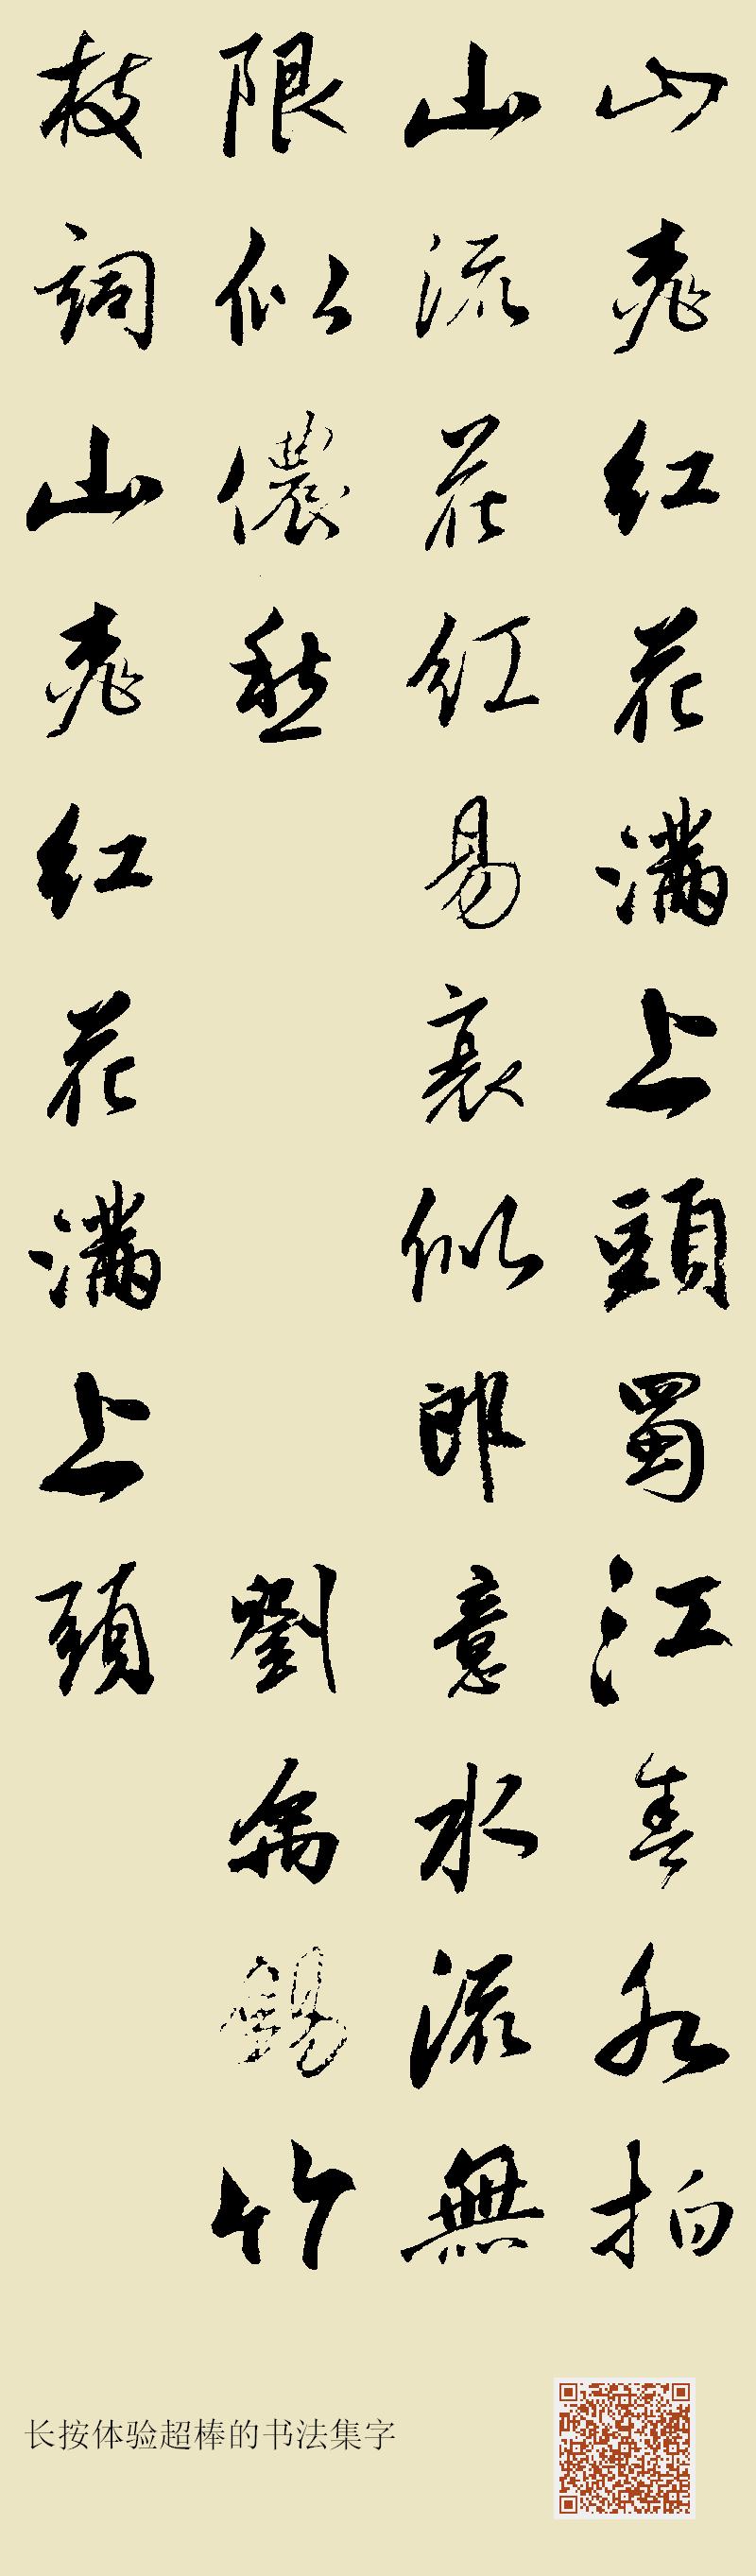 山桃红花满上頭蜀江春水拍
山流花紅易衰似郎意水流無
限似儂愁劉禹錫竹
枝詞山桃红花满上頭
长按体验超棒的书法集字